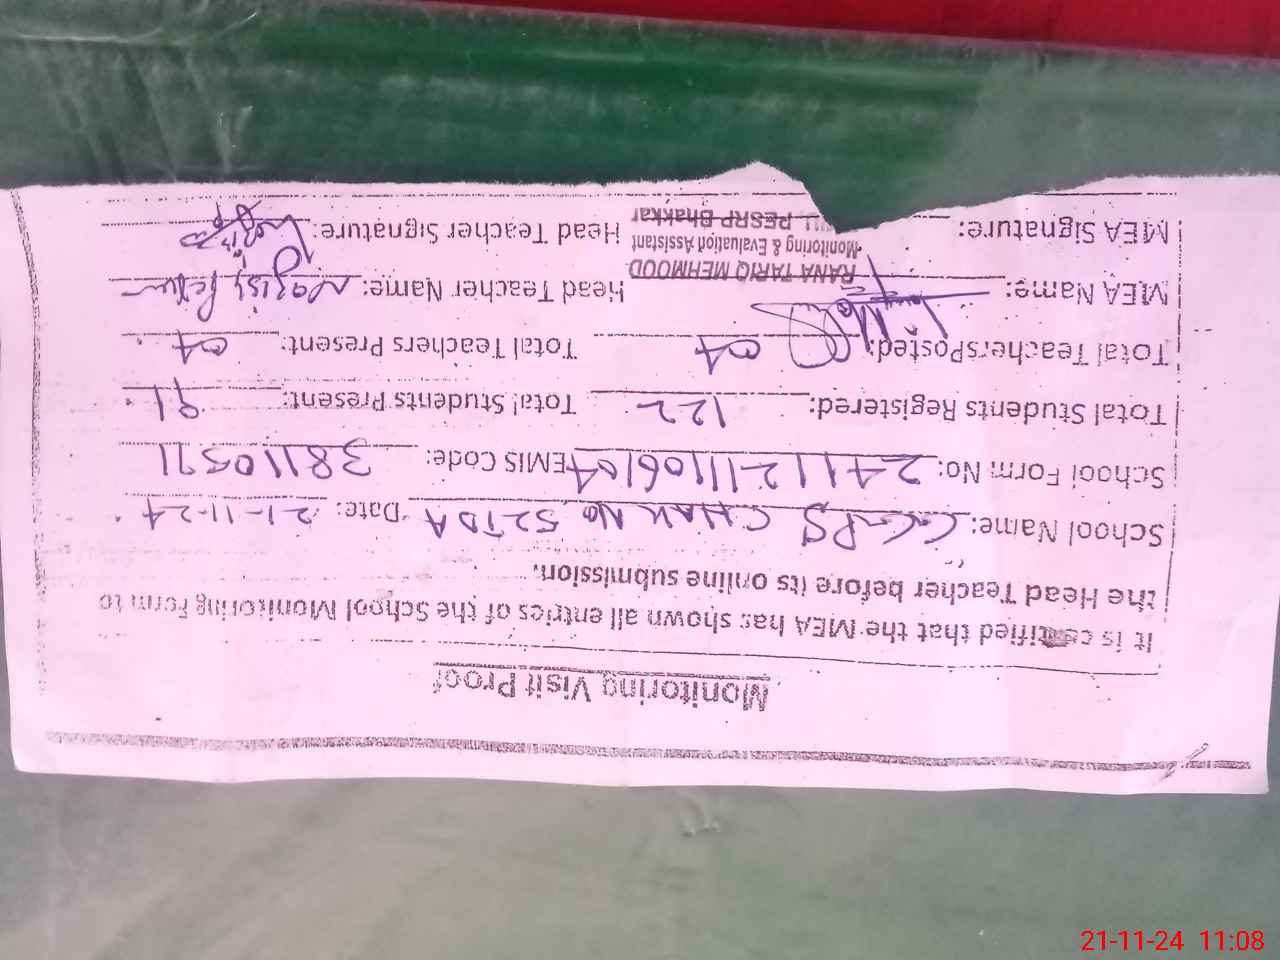 Monitoring Visit Proof
It is certified that the MEA has shown all entries of the School Monitoring Form to
the Head Teacher before its online submission.
School Name: GGPS CHAK NO 52TDA Date: 21-11-24
School Form No: 24112111106104 EMIS Code: 38110591
Total Students Registered: 122 Total Students Present: 91
Total TeachersPosted: 04 Total Teachers Present: 04
MEA Name: Head Teacher Name:
RANA TARIQ MEHMOOD
Monitoring & Evaluation Assistant
PESRP Bhakkar
MEA Signature: Head Teacher Signature:
21-11-24 11:08